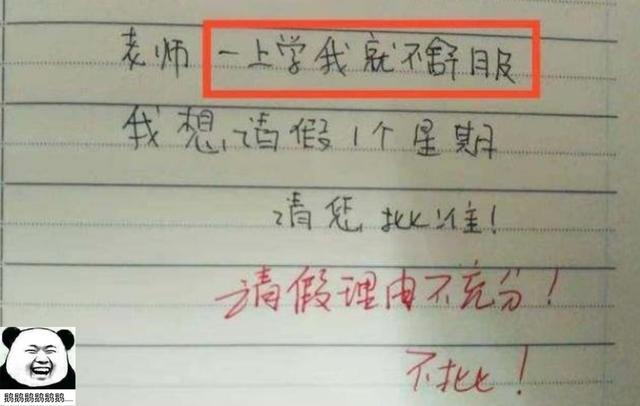 老师 一上学我就不舒服
我想请假1个星期
请您批准！
请假理由不充分！
不批！
鹅鹅鹅鹅鹅鹅......